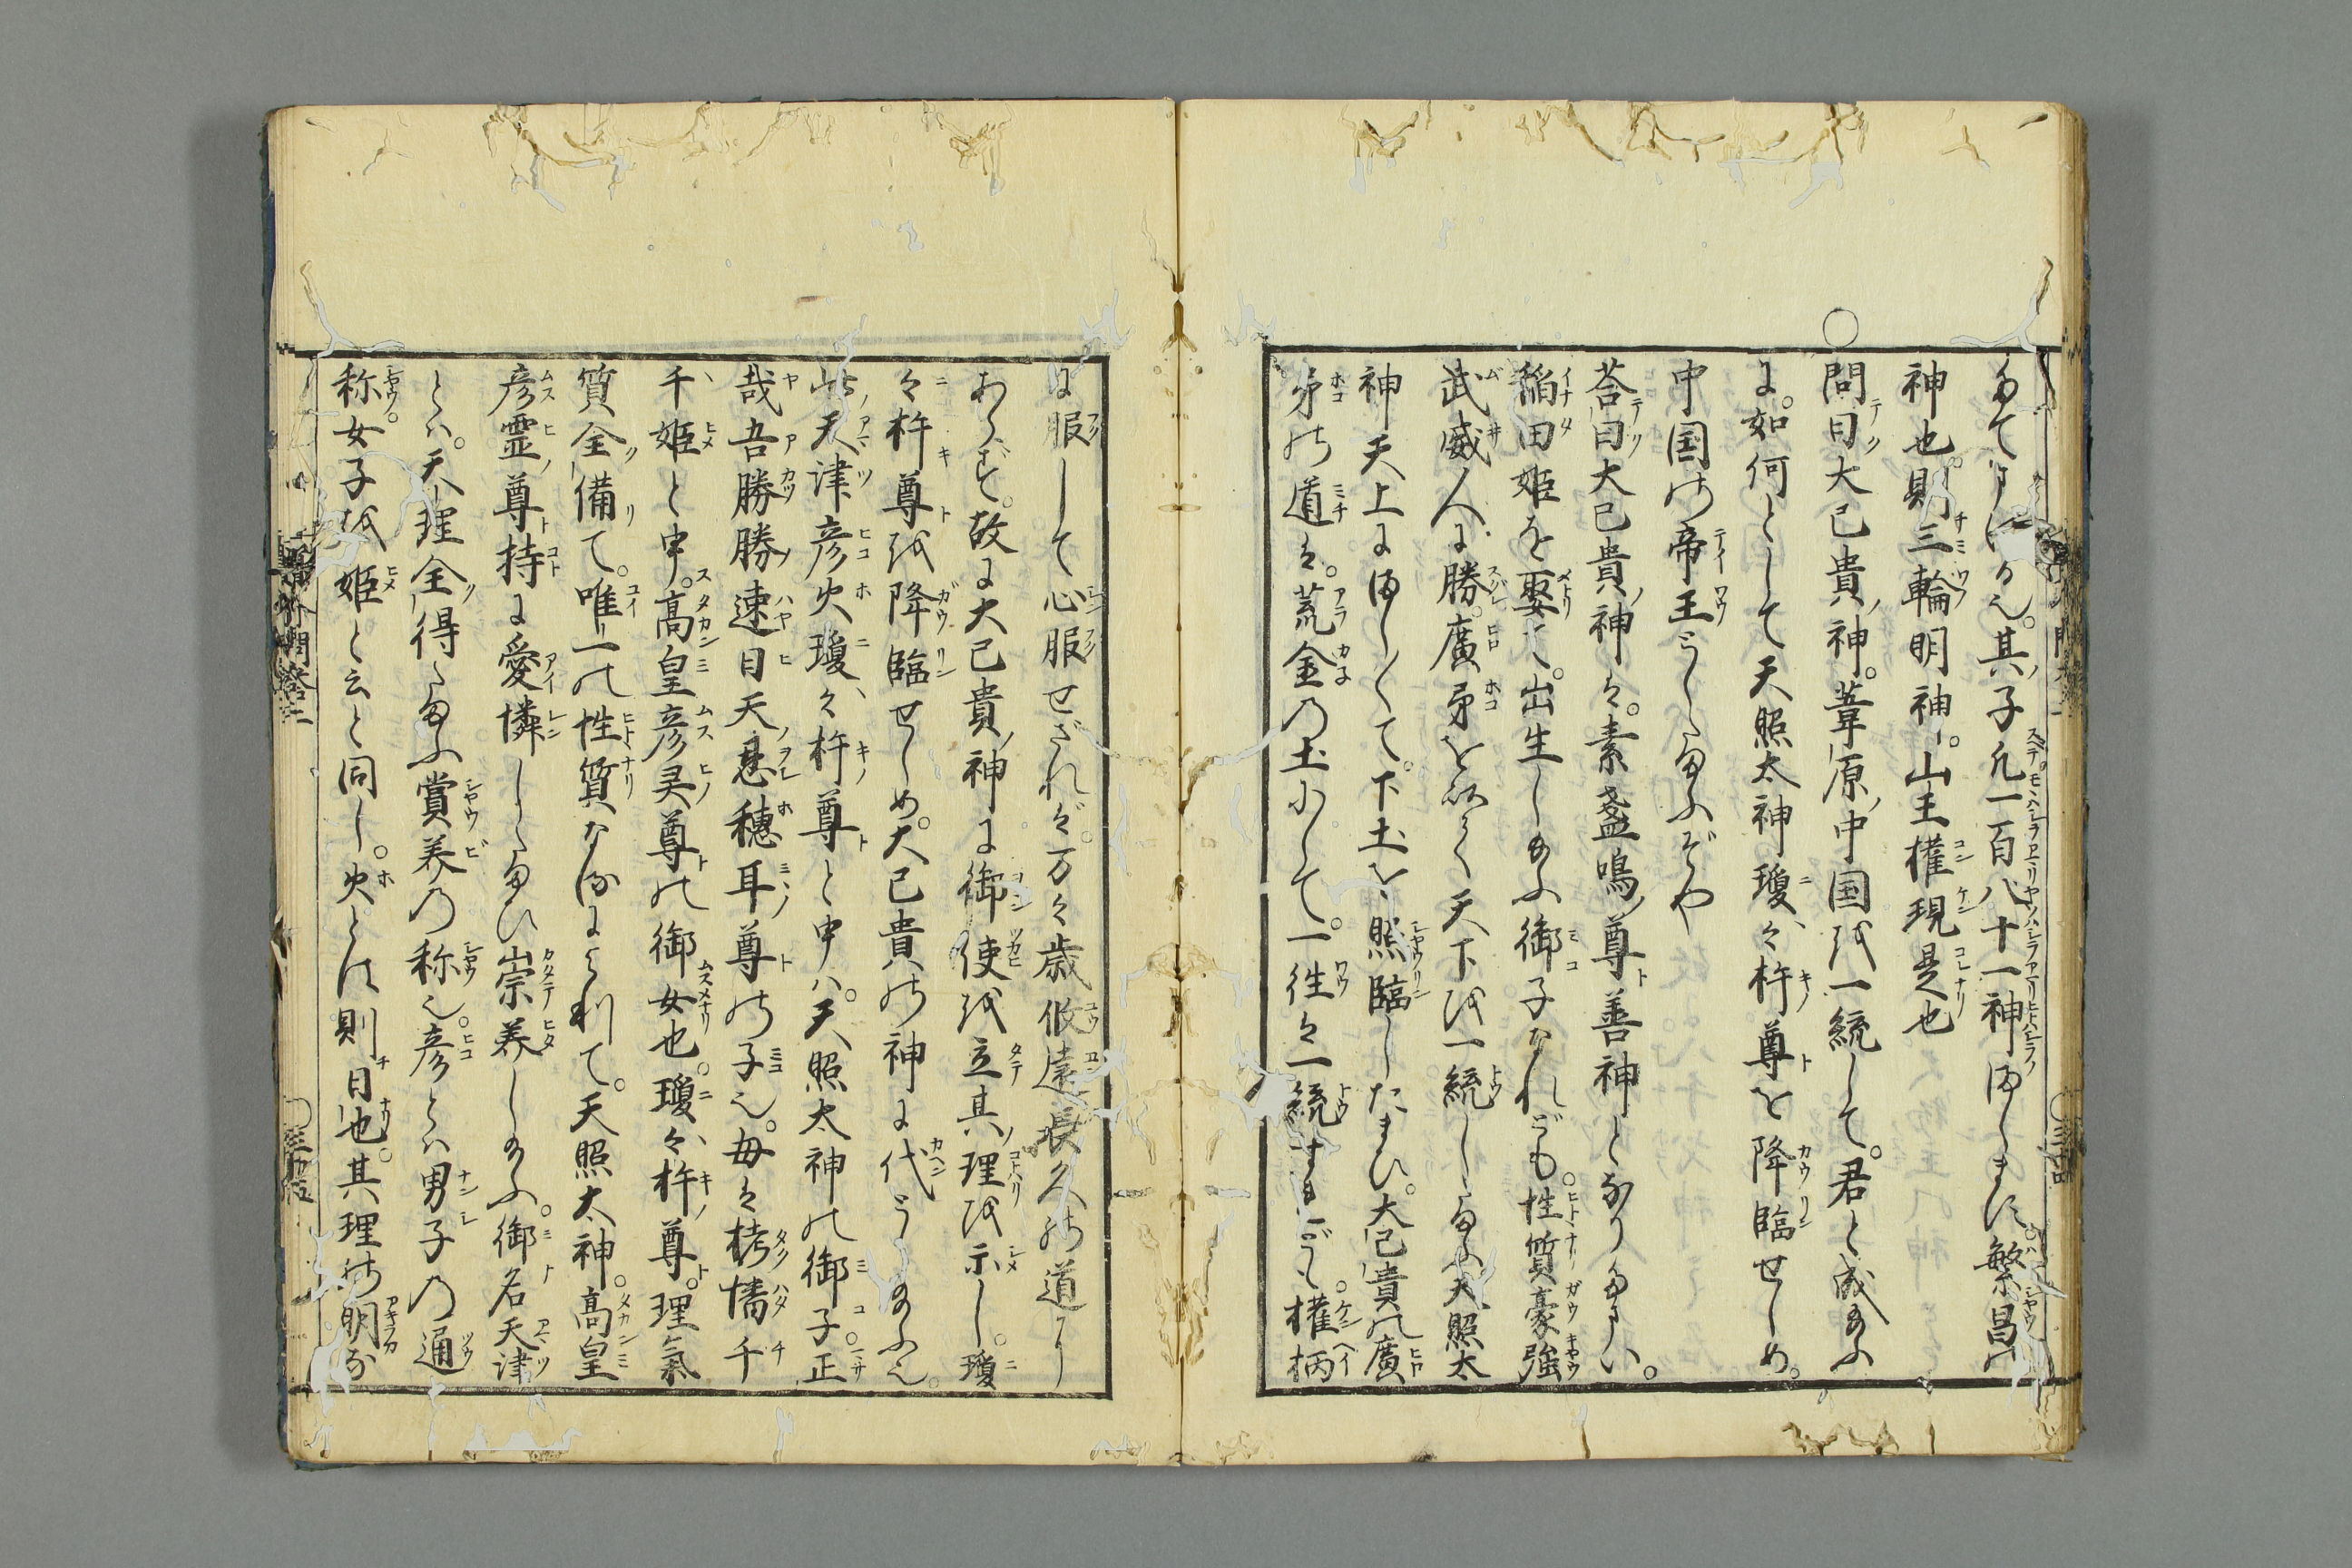 給てましける也。其子凡一百八十一神ましまは。繁昌の
神也。則三輪明神。山王権現是也
○問曰大已貴神。葦原中国を一統して。君と成給ふ
に。如何として天照太神瓊々杵尊を降臨せしめ。
中国の帝王とし給ふぞや
荅曰大已貴神は。素盞嗚尊善神となり給ひ。
稲田姫を娶て。出生し給ふ御子なれども。性質豪強
武威人に勝。廣矛を以て天下を一統し給ふ。天照太
神天上にまし〳〵て。下土を照臨したまひ。大已貴の廣
矛の道は。荒金の土にして。一往は一統すれども。権柄
に服して心服せざれば。万々歳攸遠長久の道に
あらず。故に大已貴神に御使を立其理を示し。瓊
々杵尊を降臨せしめ。大已貴の神に代らしめ給ふ也。
此天津彦火瓊々杵尊と申は。天照太神の御子正
哉吾勝勝速日天忍穗耳尊の子也。毎は栲幡千
千姫と申。高皇彦灵尊の御女也。瓊々杵尊。理氣
質全備て。唯一の性質なるによりて。天照太神。高皇
彦霊尊持に愛憐し給ひ崇养し給ふ。御名天津
とは。天理全得給ふ賞养の称也。彦とは男子の通
称。女子を姫と云と同し。火とは則日也。其理の明な